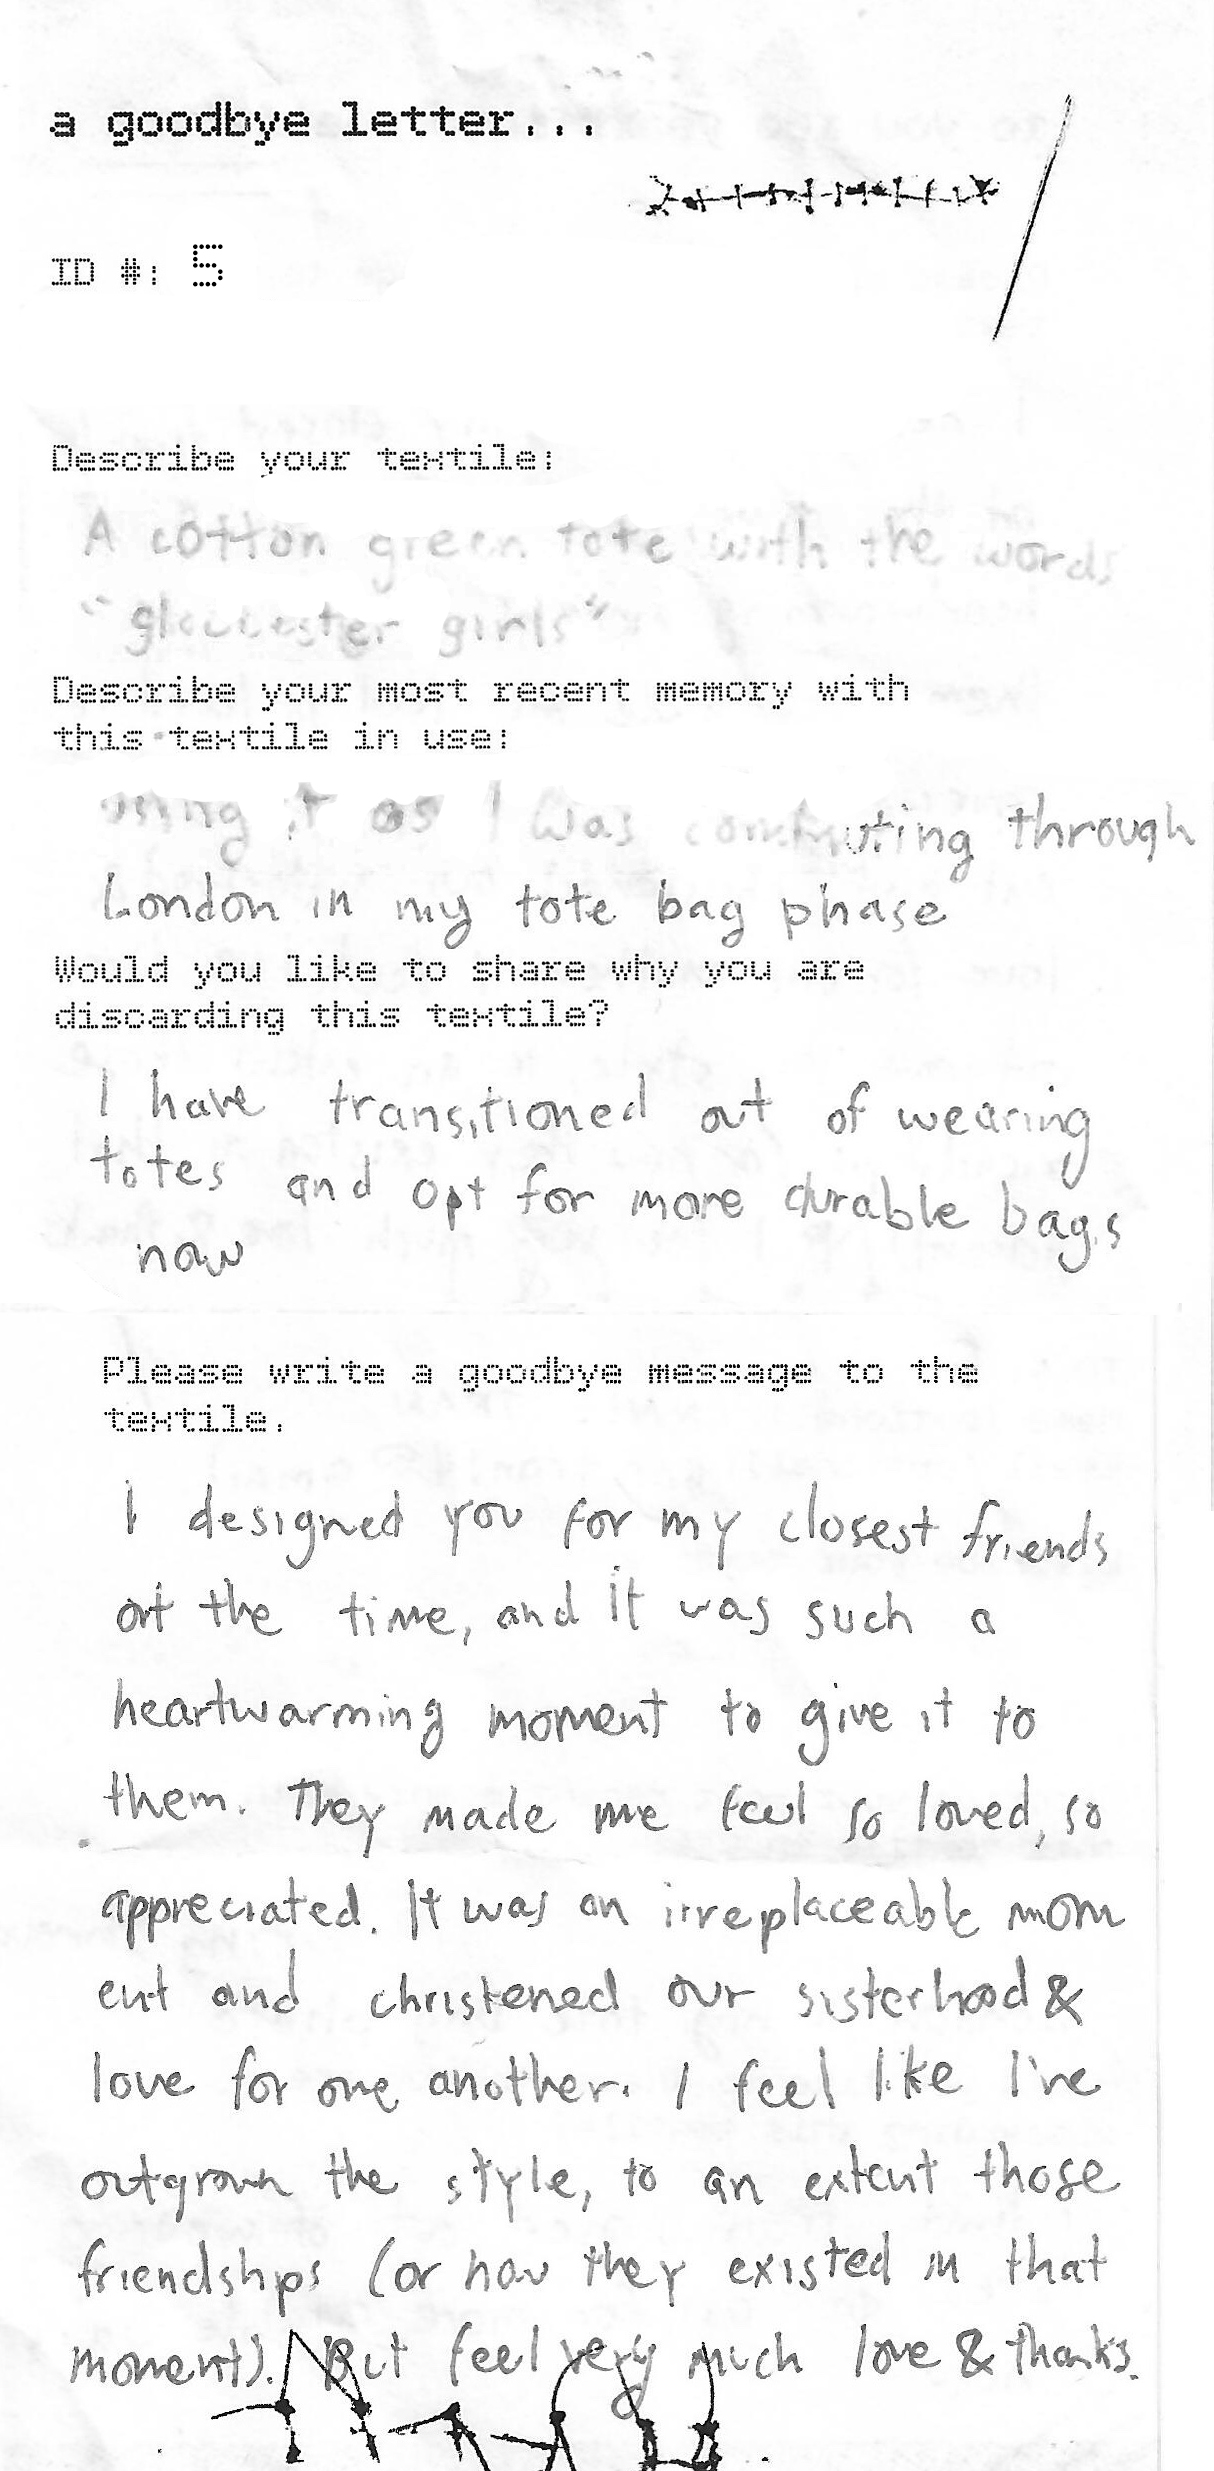 a goodbye letter...
ID #: 5
Describe your textile:
A cotton green tote with the words
"gloucester girls"
Describe your most recent memory with
this textile in use:
using it as I was commuting through
London in my tote bag phase
Would you like to share why you are
discarding this textile?
I have transitioned out of wearing
totes and opt for more durable bags
now
Please write a goodbye message to the
textile.
I designed you for my closest friends
at the time, and it was such a
heartwarming moment to give it to
them. They made me feel so loved, so
appreciated. It was an irreplaceable mom
ent and christened our sisterhood &
love for one another. I feel like I've
outgrown the style, to an extent those
friendships (or how they existed in that
moment). But feel very much love & thanks.